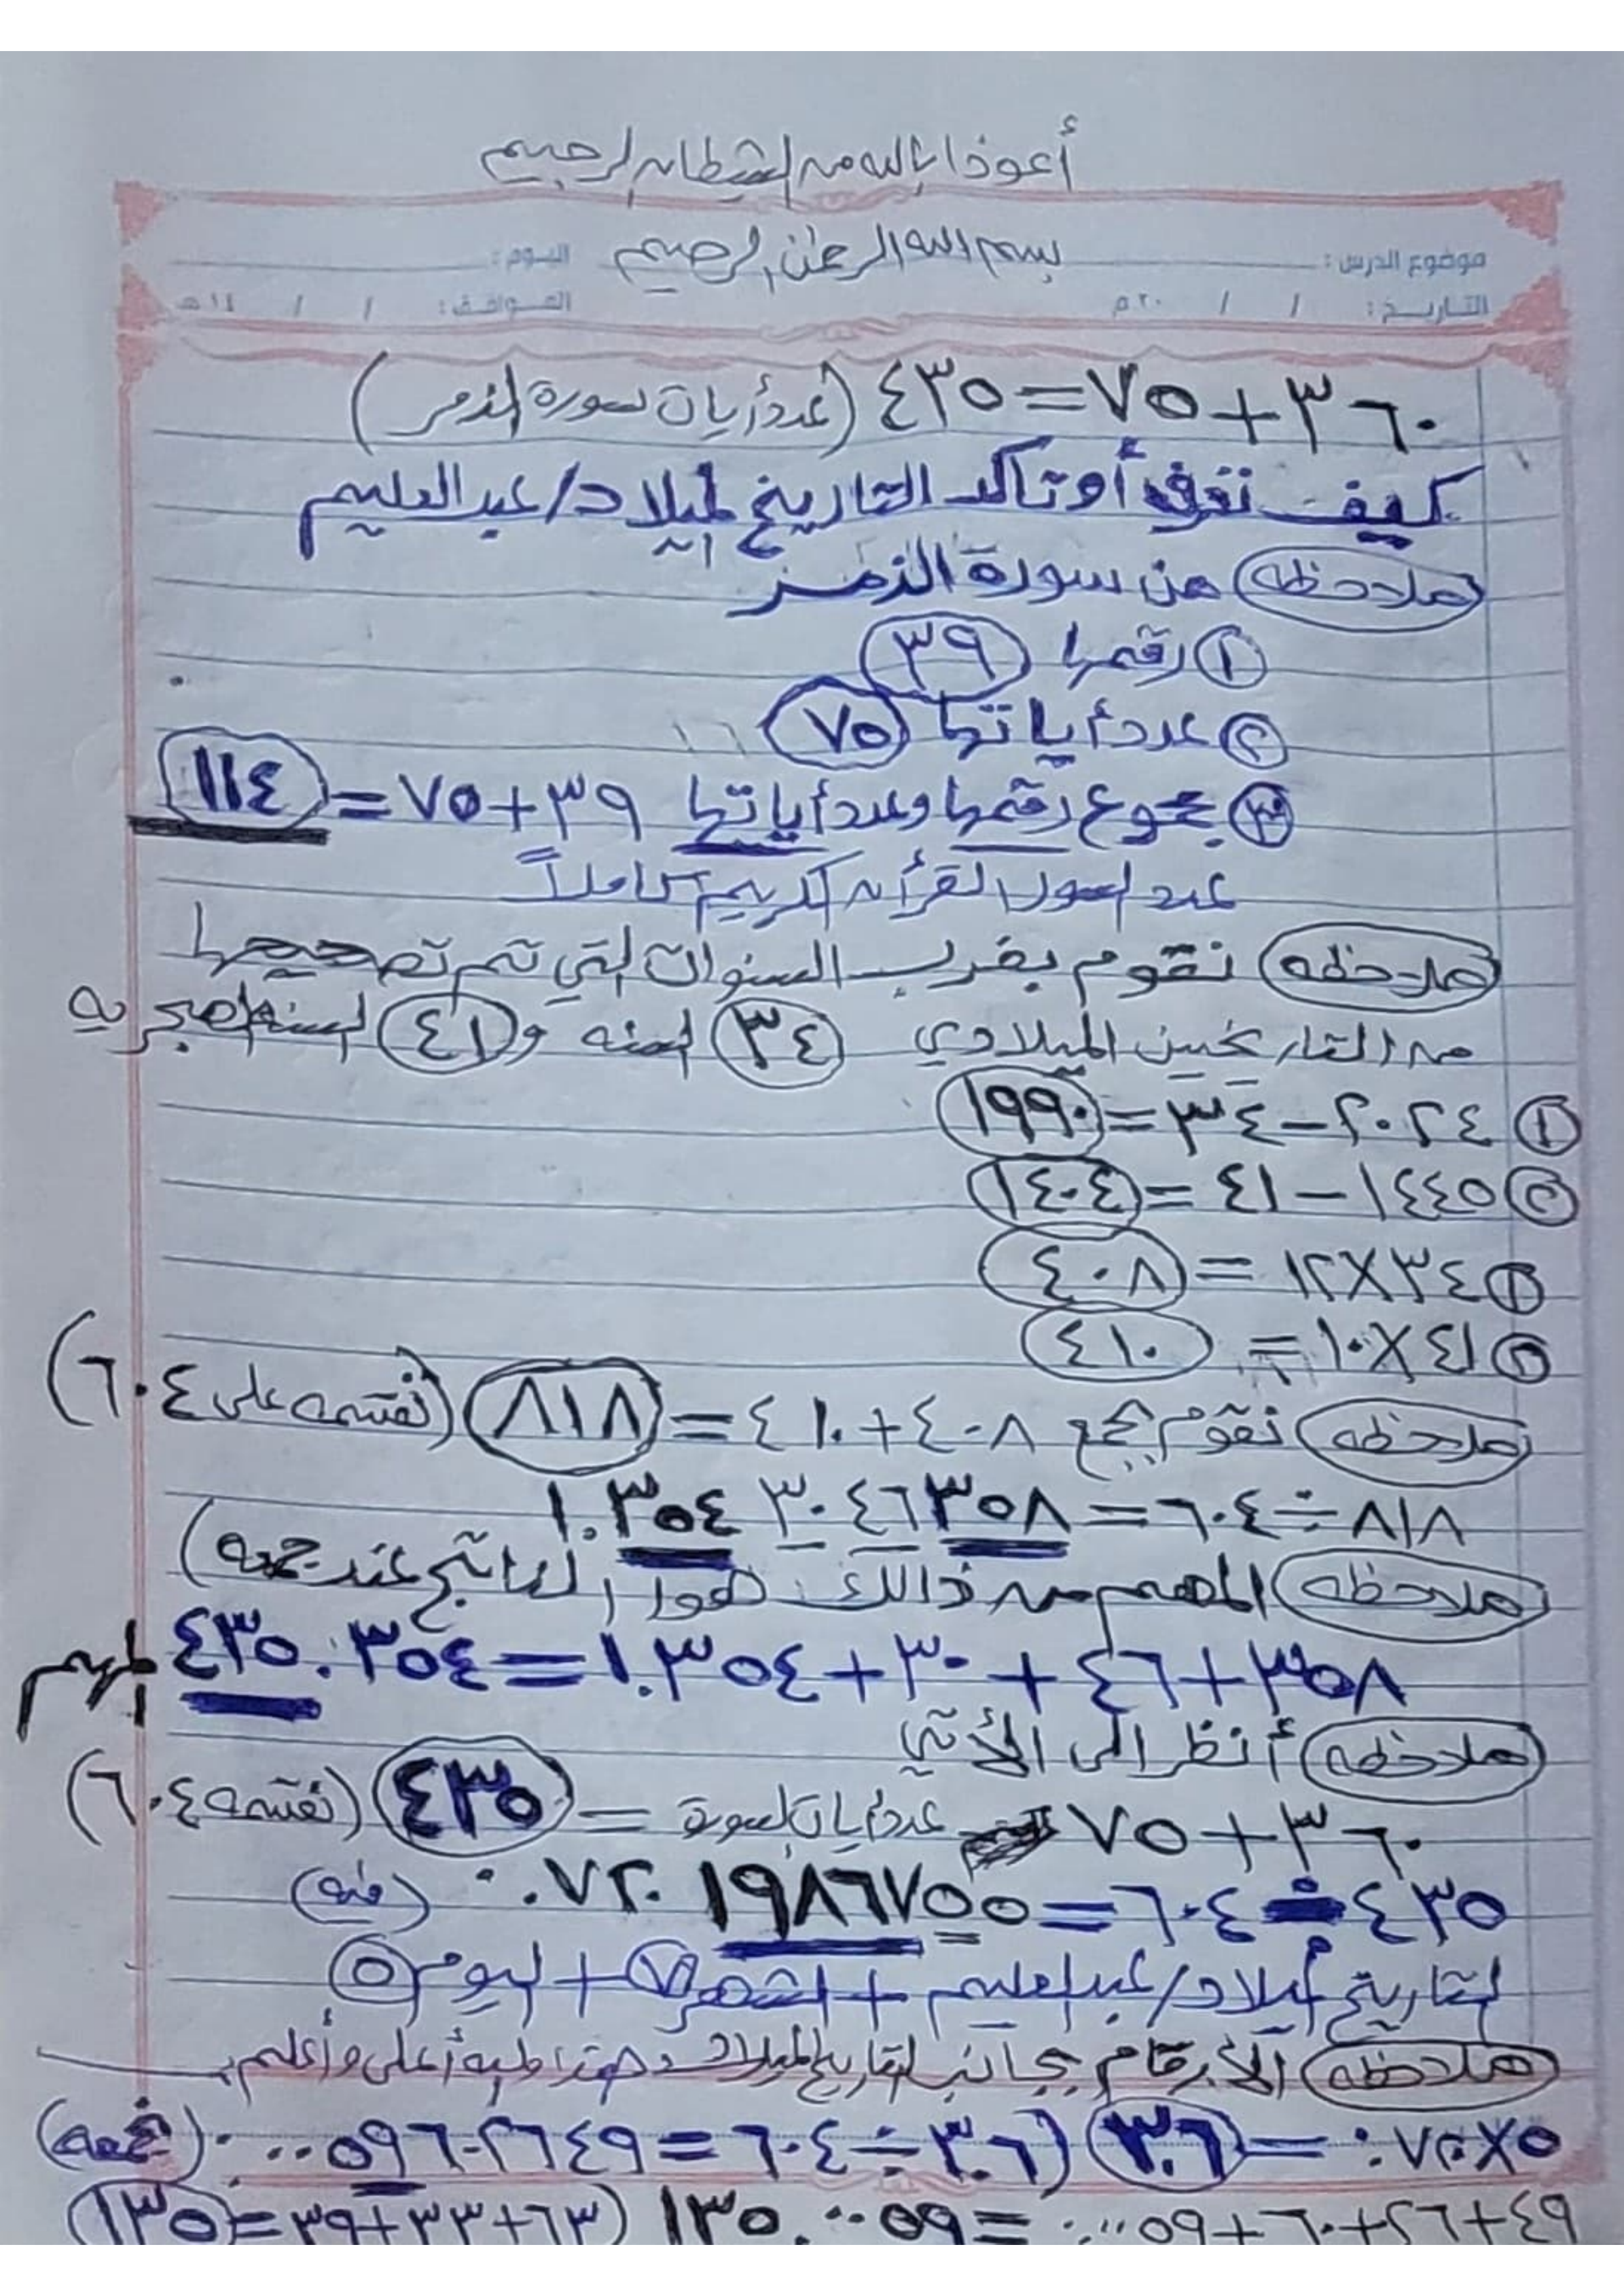 أعوذ بالله من الشيطان الرجيم
بسم الله الرحمن الرحيم
موضوع الدرس : اليوم :
التاريخ : / / ٢٠م الموافق : / / ١٤هـ
٣٦٠+٧٥=٤٣٥ (عدد أيات سورة الزمر)
كيف نعرف أو تأكد التاريخ لميلاد/عبد العليم
ملاحظه من سورة الزمر
١ رقمها ٣٩
٢ عدد أياتها ٧٥
٣ مجموع رقمها وعدد أياتها ٣٩+٧٥=١١٤
عدد السور القرأن الكريم كاملاً
ملاحظه نقوم بضرب السنوات التي تم تصحيحها
من التاريخين الميلادي ٣٤ لسنه و٤١ لسنه الهجريه
١ ٢٠٢٤-٣٤=١٩٩٠
٢ ١٤٤٥-٤١=١٤٠٤
١ ٣٤×١٢=٤٠٨
٢ ٤١×١٠=٤١٠
ملاحظه نقوم بجمع ٤٠٨+٤١٠=٨١٨ (نقسمه على ٦٠٤)
٨١٨÷٦٠٤=١.٣٥٤٣٠٤٦٣٥٨
ملاحظه المهم من ذالك هوا الناتج عند جمعه)
٣٥٨+٤٦+٣٠+١.٣٥٤=٤٣٥.٣٥٤ المهم
ملاحظه أنظر الى الأتي
٣٦٠+٧٥ عدد أيات السورة = ٤٣٥ (نقسمه ٦٠٤)
٤٣٥÷٦٠٤=٠.٧٢٠١٩٨٦٧٥٥ (منه)
لتاريخ أميلاد/عبد العليم + الشهر ٧ + اليوم ٥
ملاحظه الأرقام بجانب لتاريخ الميلاد والله أعلى وأعلم
٥×٧٢٠.=٣.٦ (٣.٦÷٦٠٤=٠.٠٠٥٩٦٠٢٦٤٩ (نجمعه)
٤٩+٢٦+٦٠+٠.٠٠٥٩=١٣٥.٠٠٥٩ (٦٣+٣٣+٣٩=١٣٥